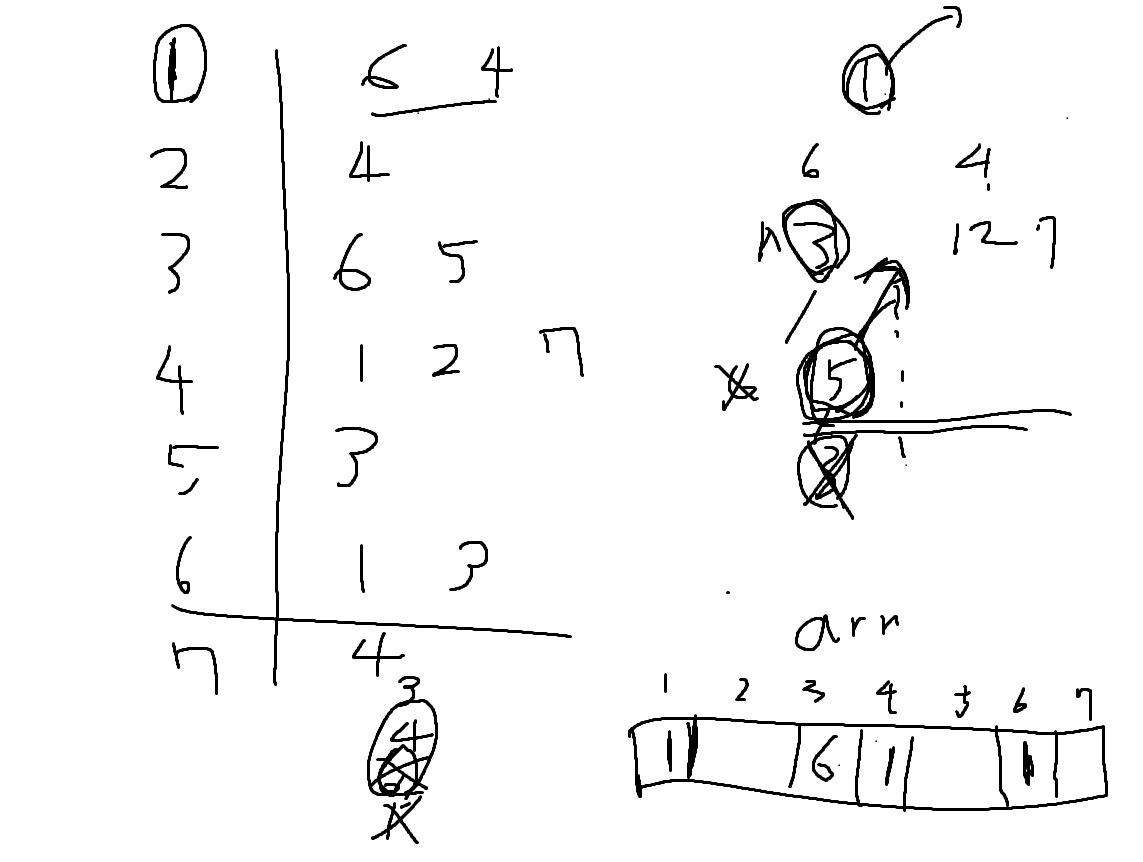 1 6 4
2 4
3 6 5
4 1 2 7
5 3
6 1 3
7 4
3
4
1
6 4
3 1 2 7
5
arr
1 2 3 4 5 6 7
1 6 1 1